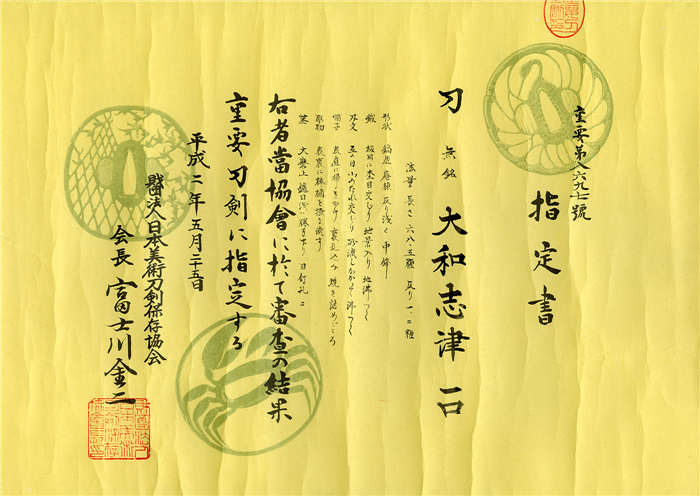 重要第八六九七號
指定書
刀 無銘 大和志津 一口
法量 長さ 六八・五糎 反り 一・二糎
形状 鎬造 庵棟 反り浅く 中鋒
鍛 板目に杢目交じり 地景入り 地沸つく
刃文 互の目 小のたれ交じり 砂流しかかり 沸つく
帽子 表直に掃きかけ 裏乱込み 焼き詰めごころ
彫物 表裏に棒樋を掻き流す
茎 大磨上 目釘孔二
右者當協會に於て審査の結果
重要刀剣に指定する
平成二年五月二十五日
財団法人日本美術刀剣保存協会
会長 富士川金二